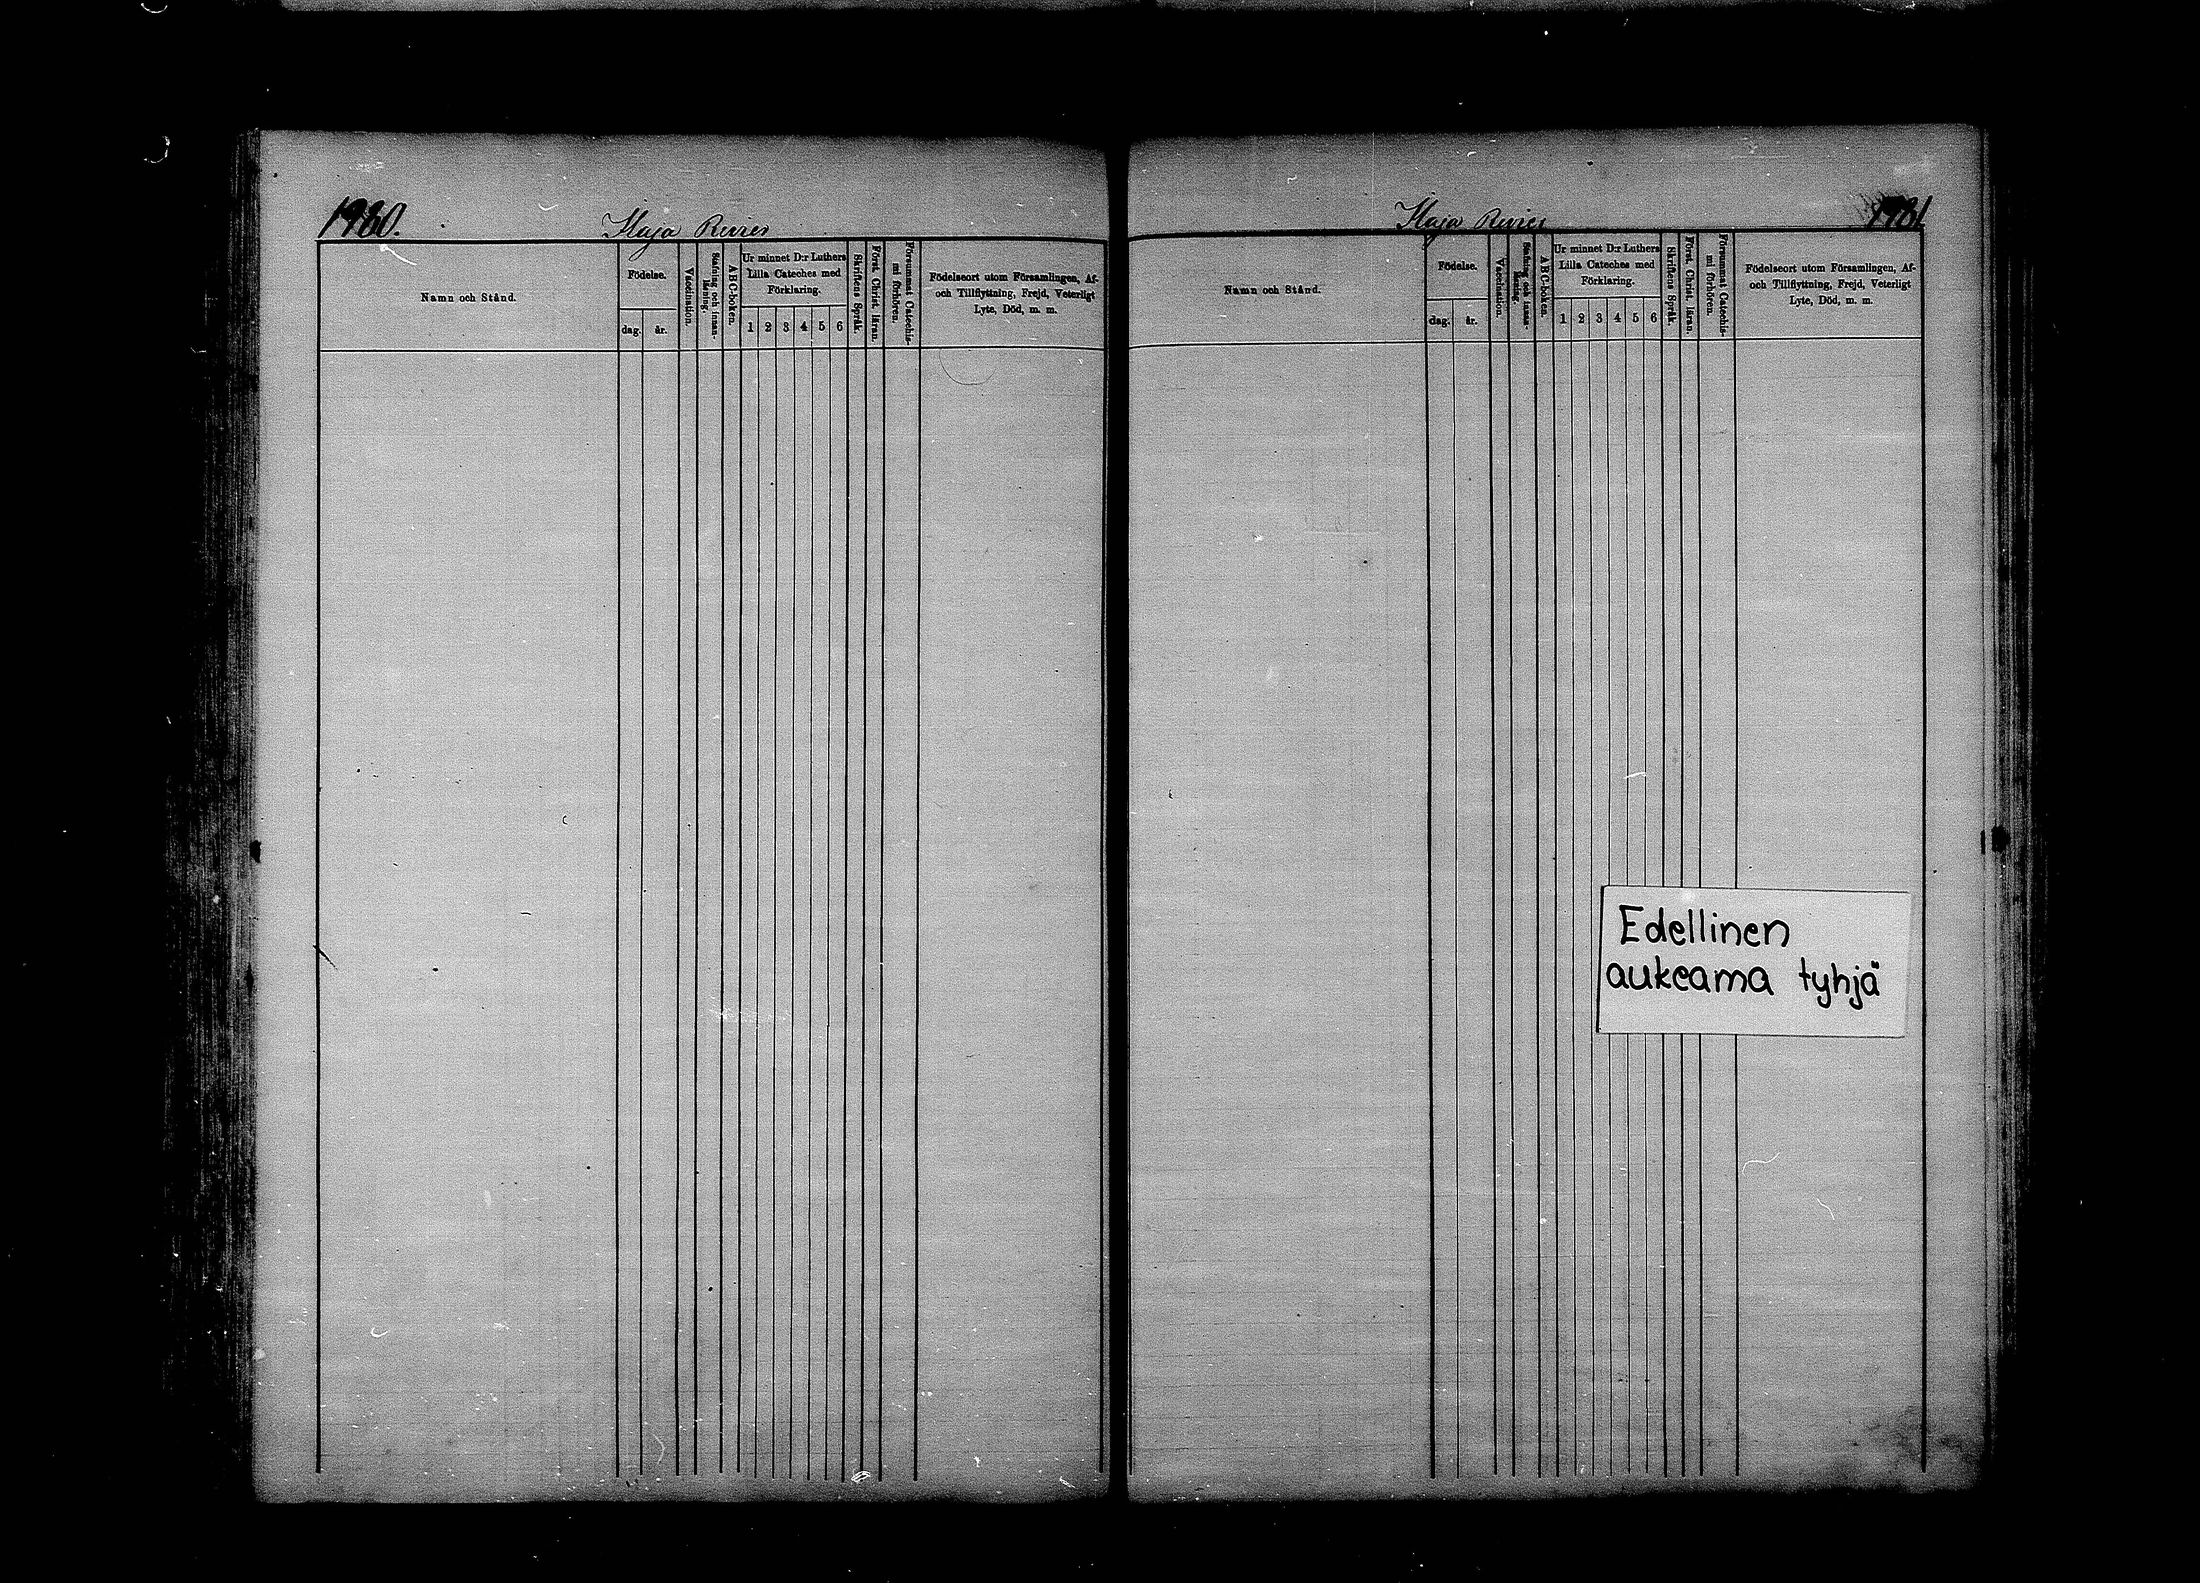 1980.
Haja Rwies
Namn och Stånd.
Födelse.
dag.
år.
Vaccination.
Stafning och innan-
läsning.
ABC-boken.
Ur minnet D:r Luthers
Lilla Cateches med
Förklaring.
1 2 3 4 5 6
Skriftens Språk.
Först. Christ. läran.
Försummat Catechis-
mi förhören.
Födelseort utom Församlingen, Af-
och Tillflyttning, Frejd, Veterligt
Lyte, Död, m. m.
1981
Haja Rwies
Namn och Stånd.
Födelse.
dag.
år.
Vaccination.
Stafning och innan-
läsning.
ABC-boken.
Ur minnet D:r Luthers
Lilla Cateches med
Förklaring.
1 2 3 4 5 6
Skriftens Språk.
Först. Christ. läran.
Försummat Catechis-
mi förhören.
Födelseort utom Församlingen, Af-
och Tillflyttning, Frejd, Veterligt
Lyte, Död, m. m.
Edellinen
aukeama tyhjä